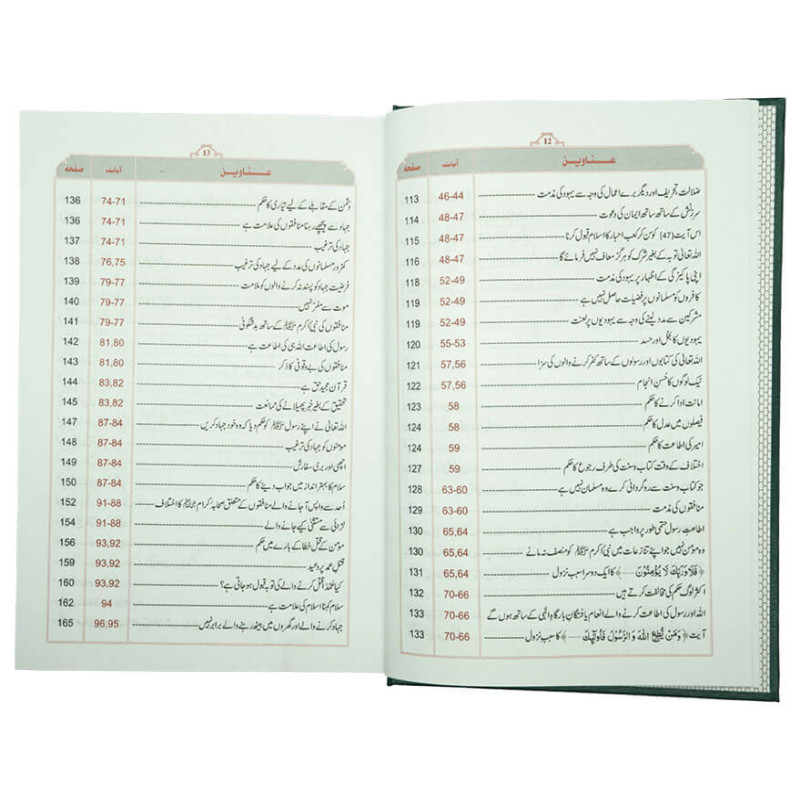 12
عناوین آیات صفحہ
ضلالت تحریف اور دیگر برے اعمال کی وجہ سے یہود کی مذمت 46-44 113
سرزنش کے ساتھ ساتھ ایمان کی دعوت 48-47 114
اس آیت (47) کو سن کر کعب احبار کا اسلام قبول کرنا 48-47 115
اللہ تعالیٰ توبہ کے بغیر شرک کو ہرگز معاف نہیں فرمائے گا 48-47 116
اپنی پاکیزگی کے اظہار پر یہود کی مذمت 52-49 118
کافروں کو مسلمانوں پر فضیلت حاصل نہیں ہے 52-49 119
مشرکین سے مدد لینے کی وجہ سے یہودیوں پر لعنت 52-49 119
یہودیوں کا بخل اور حسد 55-53 120
اللہ تعالیٰ کی کتابوں اور رسولوں کے ساتھ کفر کرنے والوں کی سزا 57,56 121
نیک لوگوں کا حسن انجام 57,56 122
امانت ادا کرنے کا حکم 58 123
فیصلوں میں عدل کا حکم 58 124
امیر کی اطاعت کا حکم 59 124
اختلاف کے وقت کتاب وسنت کی طرف رجوع کا حکم 59 127
جو کتاب وسنت سے روگردانی کرے وہ مسلمان نہیں ہے 63-60 128
منافقوں کی مذمت 63-60 129
اطاعتِ رسول حتمی طور پر واجب ہے 65,64 130
وہ مومن نہیں جو اپنے تنازعات میں نبی اکرم ﷺ کو منصف نہ مانے 65,64 130
﴿فَلَا وَرَبِّكَ لَا يُؤْمِنُوْنَ ....﴾ کا ایک دوسرا سبب نزول 65,64 131
اکثر لوگ حکم کی مخالفت کرتے ہیں 70-66 132
اللہ اور رسول کی اطاعت کرنے والے انعام یافتگان بارگاہِ الٰہی کے ساتھ ہوں گے 70-66 133
آیت ﴿وَمَنْ يُّطِعِ اللّٰهَ وَالرَّسُوْلَ فَاُولٰٓئِكَ ....﴾ کا سبب نزول 70-66 133
13
عناوین آیات صفحہ
دشمن کے مقابلے کے لیے تیاری کا حکم 74-71 136
جہاد سے پیچھے رہنا منافقوں کی علامت ہے 74-71 136
جہاد کی ترغیب 74-71 137
کمزور مسلمانوں کی مدد کے لیے جہاد کی ترغیب 76,75 138
فرضیت جہاد کو پسند نہ کرنے والوں کو ملامت 79-77 139
موت سے مفر نہیں 79-77 140
منافقوں کی نبی اکرم ﷺ کے ساتھ بدشگونی 79-77 141
رسول کی اطاعت اللہ ہی کی اطاعت ہے 81,80 142
منافقوں کی بے وقوفی کا ذکر 81,80 143
قرآن مجید حق ہے 83,82 144
تحقیق کے بغیر خبر پھیلانے کی ممانعت 83,82 145
اللہ تعالیٰ نے اپنے رسول ﷺ کو حکم دیا کہ وہ خود جہاد کریں 87-84 147
مومنوں کو جہاد کی ترغیب 87-84 148
اچھی اور بری سفارش 87-84 149
سلام کا بہتر انداز میں جواب دینے کا حکم 87-84 150
اُحد سے واپس آ جانے والے منافقوں کے متعلق صحابہ کرام کا اختلاف 91-88 152
لڑائی سے مستثنیٰ کیے جانے والے 91-88 154
مومن کے قتل خطا کے بارے میں حکم 93,92 156
قتل عمد پر وعید 93,92 159
کیا عمداً قتل کرنے والے کی توبہ قبول ہو جاتی ہے؟ 93,92 160
سلام کہنا اسلام کی علامت ہے 94 162
جہاد کرنے والے اور گھروں میں بیٹھ رہنے والے برابر نہیں 96,95 165